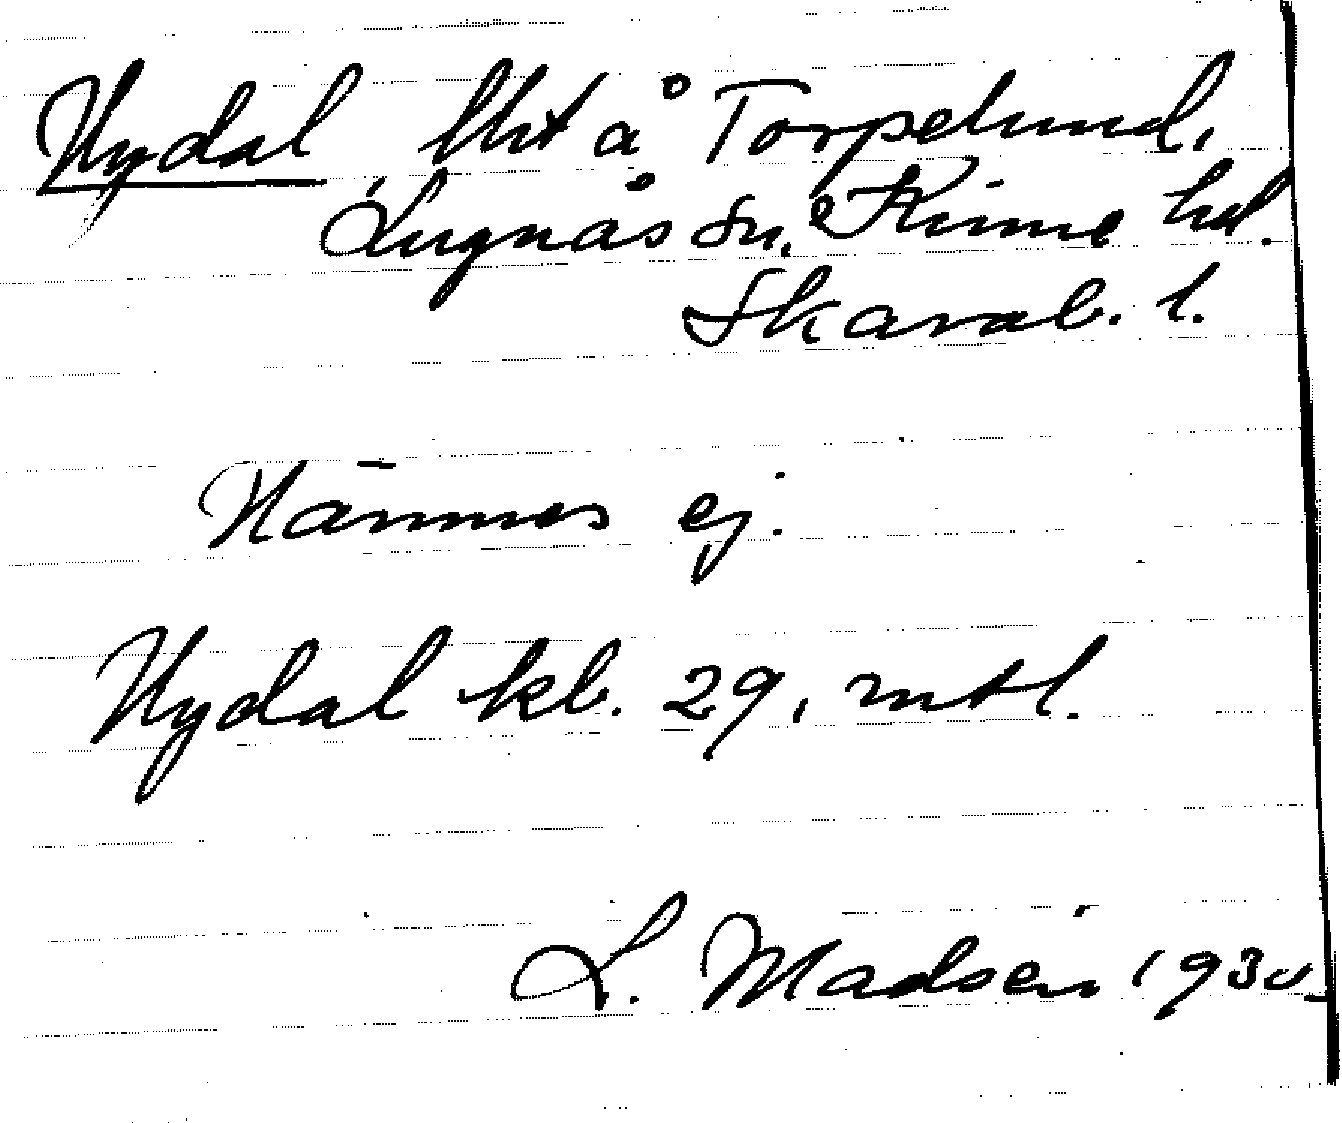 Nydal lht å Torpelund,
Lugnås sn, Kinne hd.
Skarab. l.
Nämnes ej.
Nydal kb. 29, mtl.
L. Madsén 1930